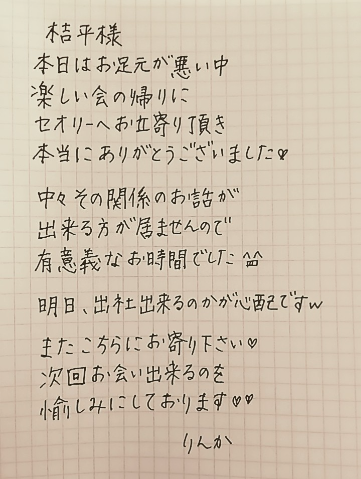 桔平様
本日はお足元が悪い中
楽しい会の帰りに
セオリーへお立寄り頂き
本当にありがとうございました♥
中々その関係のお話が
出来る方が居ませんので
有意義なお時間でした^^
明日、出社出来るのかが心配ですw
またこちらにお寄り下さい♡
次回お会い出来るのを
愉しみにしております♥♥
りんか